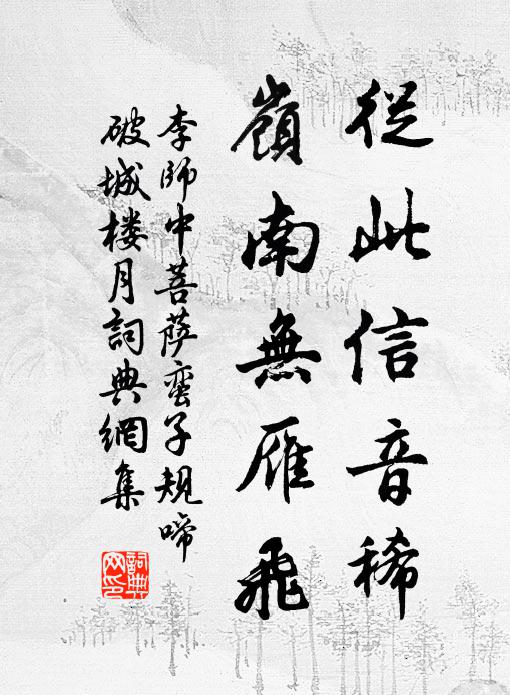 從此信音稀
嶺南無雁飛
李師中菩萨蛮子規啼
破城楼月詞典網集
詞典
网印